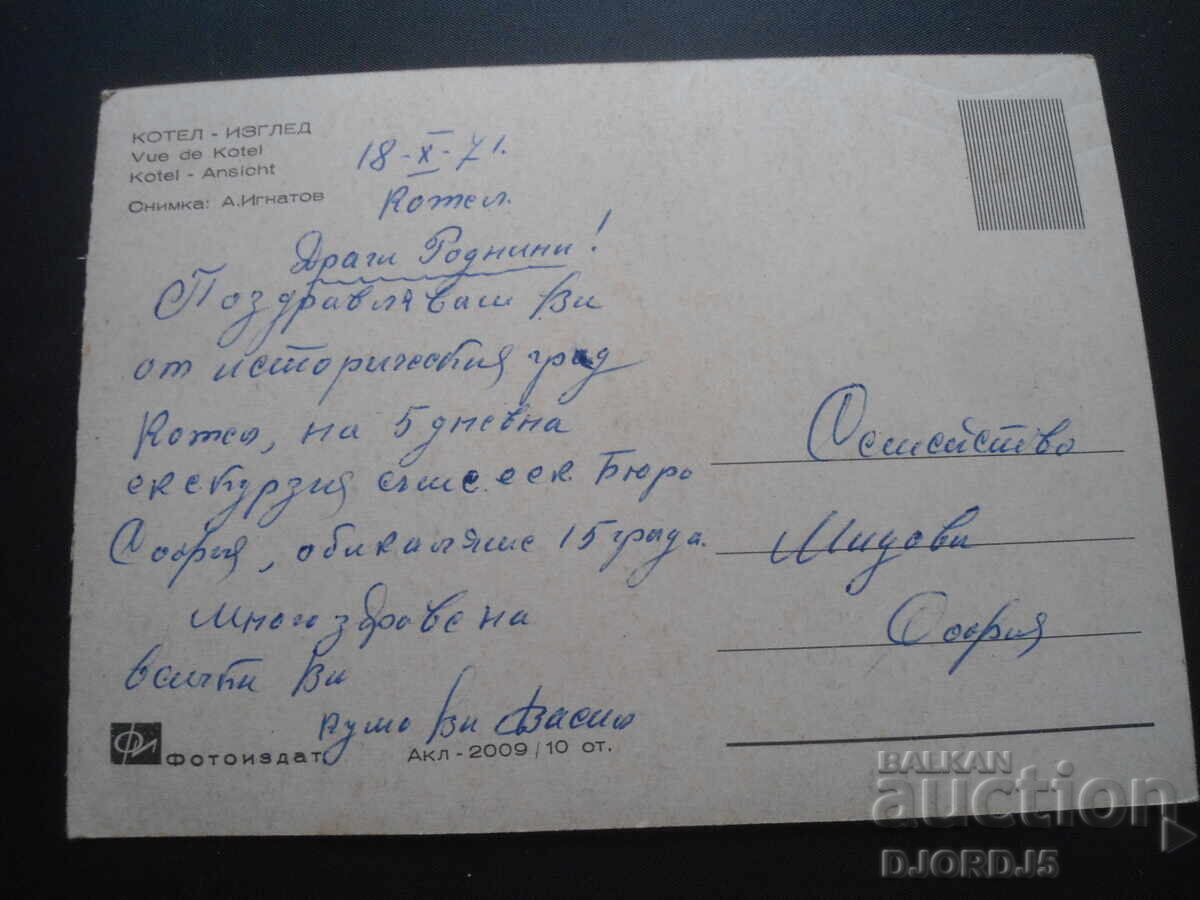 КОТЕЛ - ИЗГЛЕД
Vue de Kotel
Kotel - Ansicht
Снимка: А.Игнатов
18-X-71.
Котел.
Драги Роднини!
Поздравляваш Ви
от историческия град
Котел, на 5 дневна
екскурзия съм с еск. Бюро
София, обикаляме 15 града.
Много здраве на
всички Ви
Кумо Ви Васил
Фотоиздат
Акл-2009/10 от.
Семейство
Мидови
София
BALKAN
auction
DJORDJ5